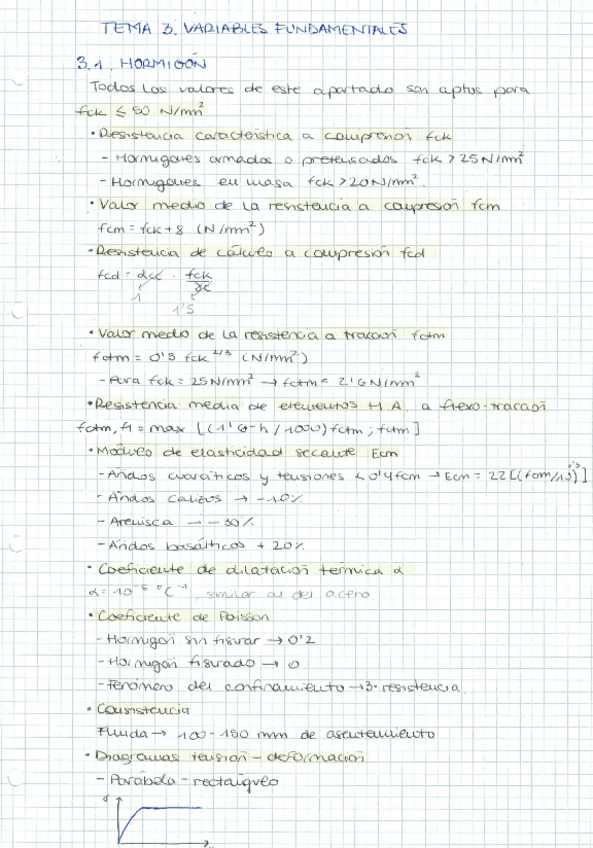 TEMA 3. VARIABLES FUNDAMENTALES
3.1. HORMIGÓN
Todos los valores de este apartado son aptos para
fck ≤ 50 N/mm²
• Resistencia característica a compresión fck
- Hormigones armados o pretensados fck > 25 N/mm²
- Hormigones en masa fck > 20 N/mm².
• Valor medio de la resistencia a compresión fcm
fcm = fck + 8 (N/mm²)
• Resistencia de cálculo a compresión fcd
fcd = αcc · fck
γc
1
1'5
• Valor medio de la resistencia a tracción fctm
fctm = 0'3 fck^2/3 (N/mm²)
- Para fck = 25 N/mm² → fctm = 2'6 N/mm²
• Resistencia media de elementos H.A. a flexo-tracción
fctm,fl = max [(1'6 - h/1000) fctm ; fctm]
• Módulo de elasticidad secante Ecm
- Áridos cuarcíticos y tensiones < 0'4 fcm → Ecm = 22 [(fcm/10)^0'3]
- Áridos calizos → -10%
- Arenisca → -30%
- Áridos basálticos + 20%
• Coeficiente de dilatación térmica α
α = 10⁻⁵ °C⁻¹, similar al del acero
• Coeficiente de Poisson
- Hormigón sin fisurar → 0'2
- Hormigón fisurado → 0
- Fenómeno del confinamiento → 3· resistencia.
• Consistencia
Fluida → 100-150 mm de asentamiento
• Diagramas tensión - deformación
- Parábola - rectángulo
σ